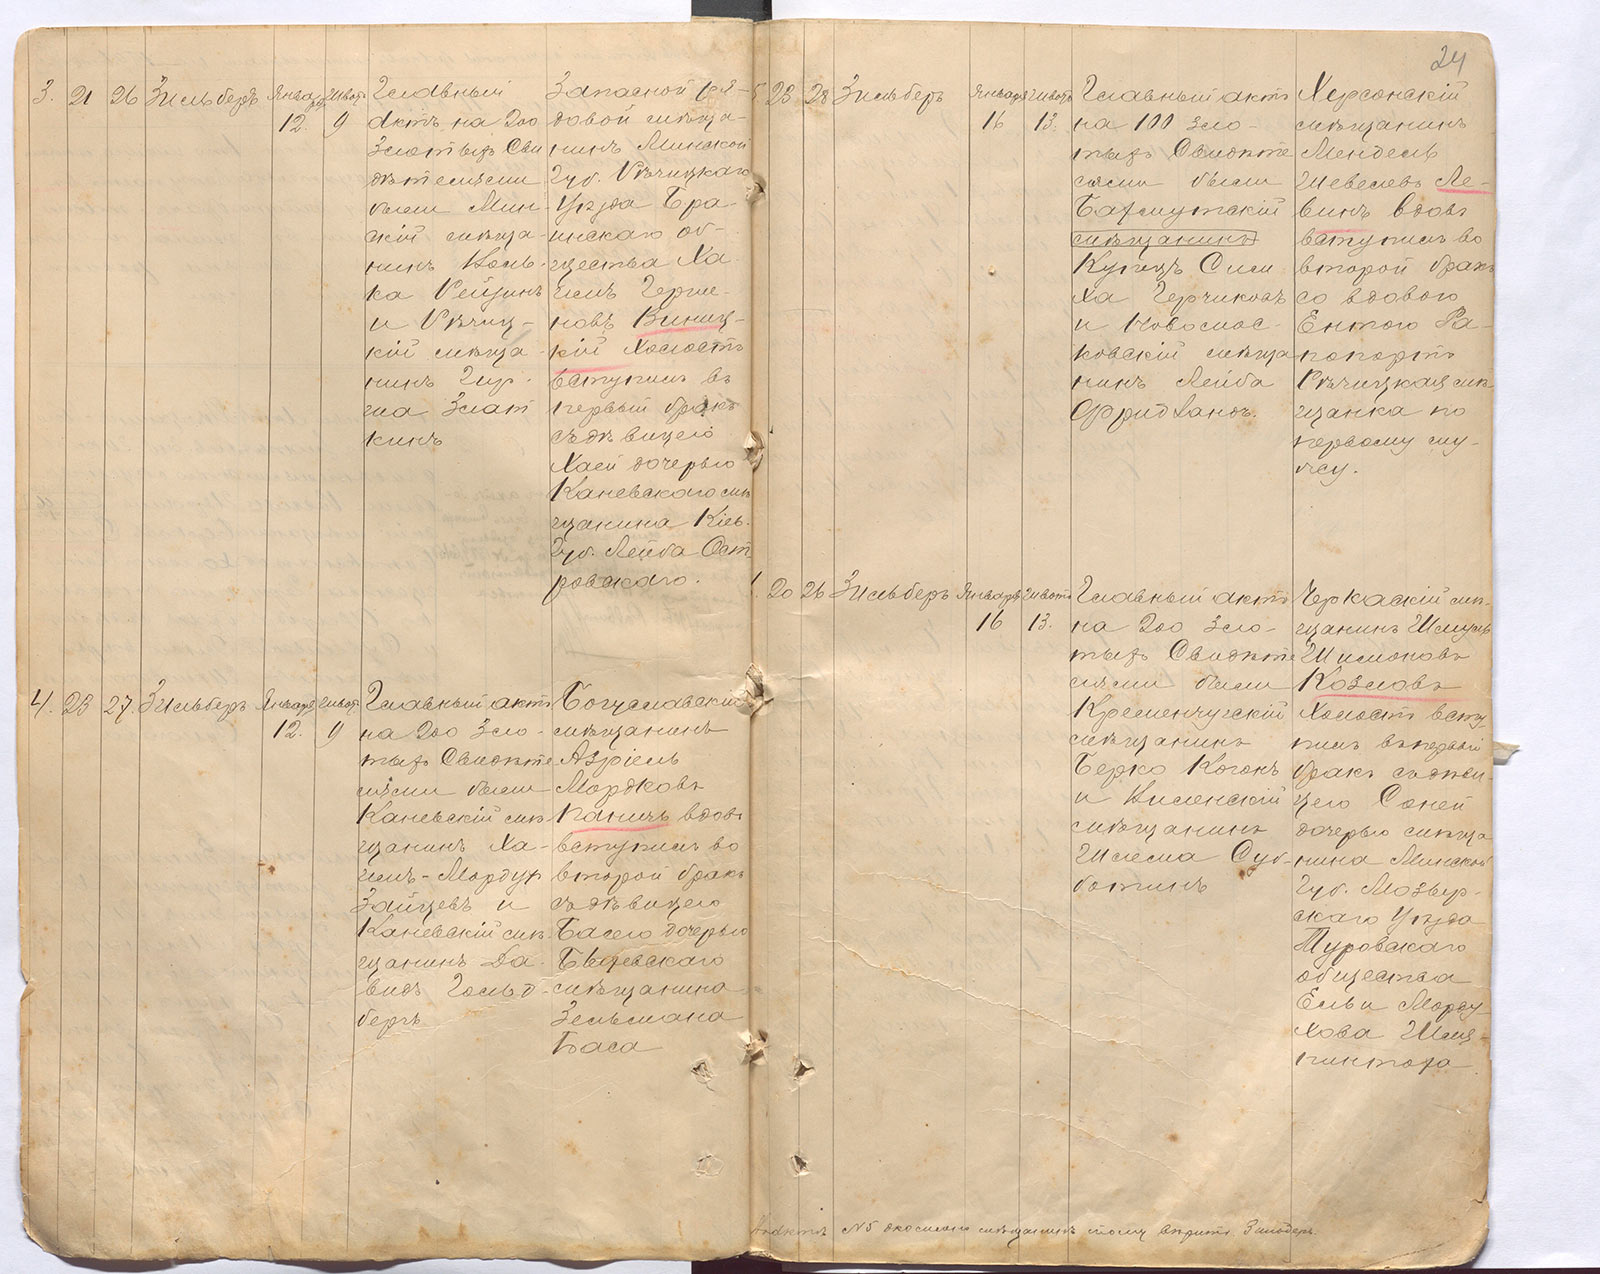 24
3. 21 26 Зильберъ Январь 12. Шиватъ 9
Главный
Актъ на 200
Злотыхъ Сви
дѣтелями
были Мин-
скій мѣща-
нинъ
ка Рейзинъ
и Рѣчиц-
кій мѣща-
нинъ Гир-
ша Злат
кинъ
Запасной ря-
довой мѣща-
нинъ Минской
Губ. Рѣчицкаго
Уѣзда Бра-
гинскаго об-
щества Ха
имъ Герше-
новъ Виниц-
кій Холостъ
вступилъ въ
первый бракъ
съ дѣвицею
Хаей дочерью
Каневскаго мѣ
щанина Кіев.
Губ. Лейба Ост
ровскаго.
4. 23 27. Зильберъ Январь 12. Шиватъ 9
Главный актъ
на 200 зло-
тыхъ Свидѣте
лями были
Каневскій мѣ
щанинъ Ха-
имъ-Мордух
Зайцевъ и
Каневскій мѣ
щанинъ Да-
видъ Гольд-
бергъ
Богуславскій
мѣщанинъ
Азріель
Мордковъ
Паничъ вдовъ
вступилъ во
второй бракъ
съ дѣвицею
Басею дочерью
мѣщанина
Зельмана
Баса
5 23 28 Зильберъ Январь 16 Шиватъ 13.
Главный актъ
на 100 зло-
тыхъ Свидѣте
лями были
Бахмутскій
мѣщанинъ
Купецъ Сим
ха Герчиковъ
и Новомос-
ковскій мѣща
нинъ Лейба
Фридландъ.
Херсонскій
мѣщанинъ
Мендель
Шевелевъ Ле-
винъ вдовъ
вступилъ во
второй бракъ
со вдовою
Ентою Ра-
попортъ
Рѣчицкая мѣ
щанка по
первому му-
жу.
20 26 Зильберъ Январь 16 Шиватъ 13.
Главный актъ
на 200 зло-
тыхъ Свидѣте
лями были
Кременчугскій
мѣщанинъ
Берко Коганъ
и Виленскій
мѣщанинъ
Шлема Суб-
ботинъ
Черкаскій мѣ-
щанинъ Шмуль
Шимоновъ
Козловъ
Холостъ всту
пилъ въ первый
бракъ съ дѣви-
цею Соней
дочерью мѣща
нина Минской
Губ. Мозыр-
скаго Уѣзда
Туровскаго
общества
Ельи Морду
хова Шляп-
интоха
№ 5 мѣщанинъ тому вѣрить. Зильберъ.